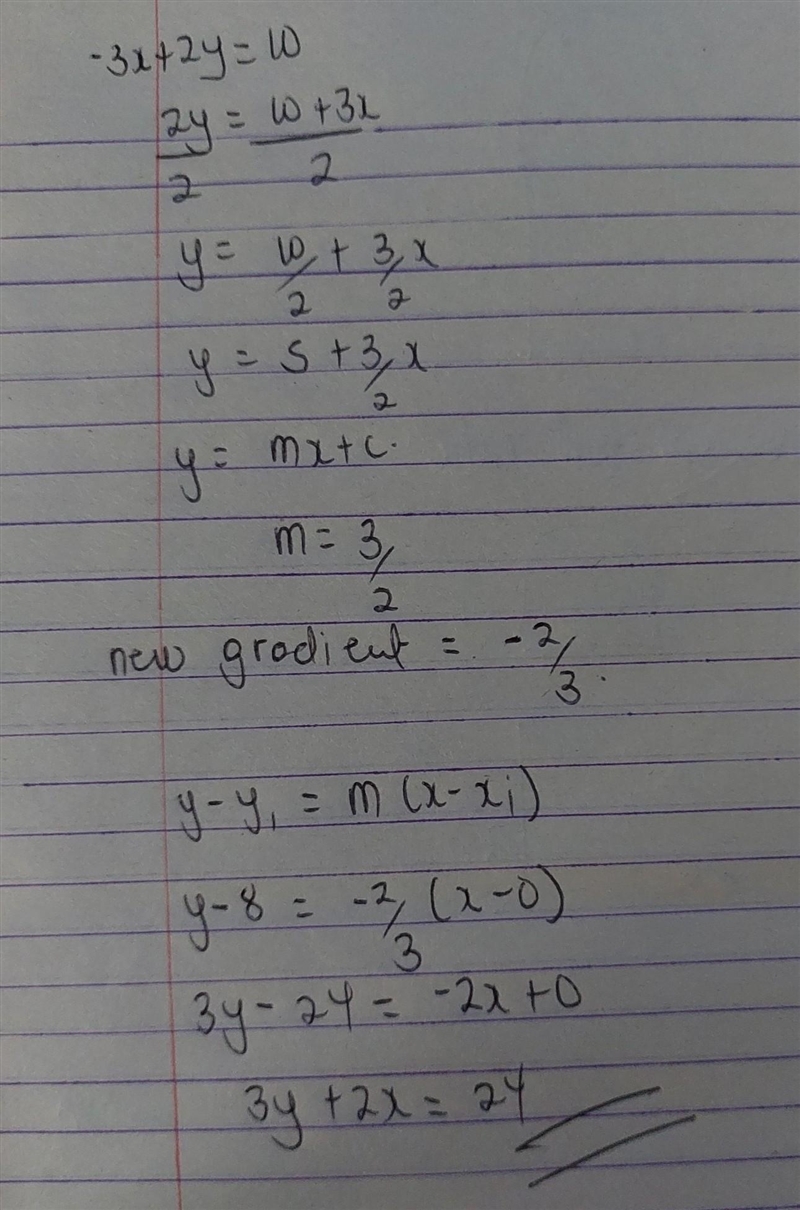 -3x+2y=10
2y = 10+3x
2 2
y = 10/2 + 3/2 x
y = 5 + 3/2 x
y = mx+c.
m = 3/2
new gradient = -2/3.
y-y₁ = m (x-x₁)
y-8 = -2/3 (x-0)
3y-24 = -2x+0
3y+2x = 24